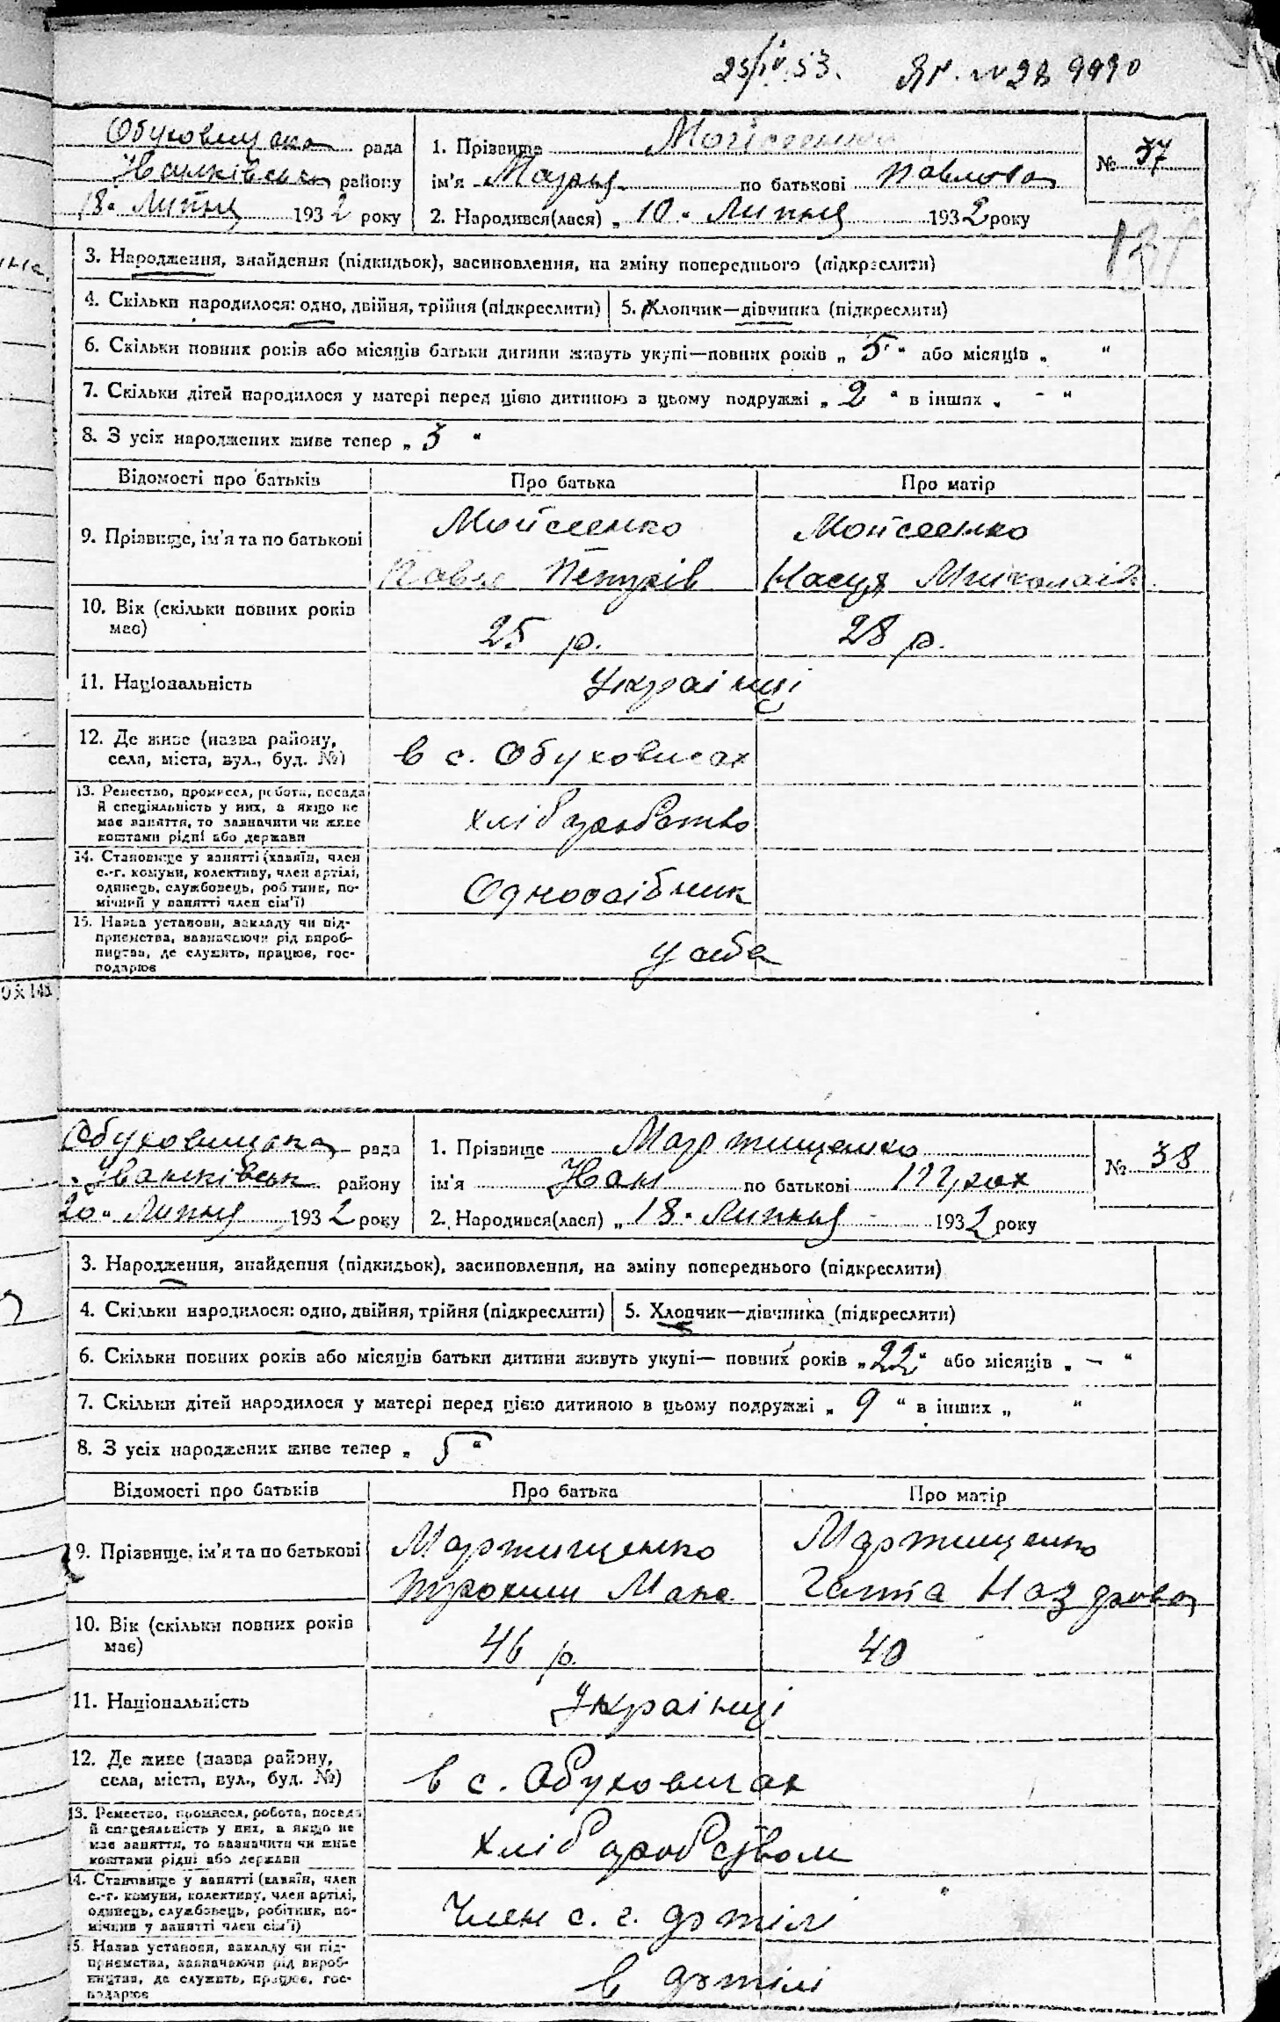 25/IV.53. ЯР. № 28 9990
Обуховицька рада
Іванківськ району
18. Липня 1932 року
1. Прізвище Мойсеенко
ім'я Мария по батькові Павлова
2. Народився(лася) „ 10. Липня 1932 року
№ 37
3. Народження, знайдення (підкидьок), засиновлення, на зміну попереднього (підкреслити)
4. Скільки народилося: одно, двійня, трійня (підкреслити) 5. Хлопчик—дівчинка (підкреслити)
6. Скільки повних років або місяців батьки дитини живуть укупі—повних років „ 5 “ або місяців „ “
7. Скільки дітей народилося у матері перед цією дитиною в цьому подружжі „ 2 “ в інших „ - “
8. З усіх народжених живе тепер „ 3 “
Відомості про батьків Про батька Про матір
9. Прізвище, ім'я та по батькові
Мойсеенко
Павло
Мойсеенко
Насця Миколаів
10. Вік (скільки повних років має) 25 р. 28 р.
11. Національність Украінці
12. Де живе (назва району, села, міста, вул., буд. №) в с. Обуховичах
13. Ремество, промисел, робота, посада
й спеціяльність у них, а якщо не
має заняття, то зазначити чи живе
коштами рідні або держави
хліборобство
14. Становище у занятті (хазяїн, член
с.-г. комуни, колективу, член артілі,
одинець, службовець, робітник, по-
мічний у занятті член сім'ї)
Одноосібник
15. Назва установи, закладу чи під-
приємства, зазначаючи рід вироб-
ництва, де служить, працює, гос-
подарює
у себе
Обуховицька рада
Іванківськ району
20. Липня 1932 року
1. Прізвище Мартищенко
ім'я Иван по батькові
2. Народився(лася) „ 18. Липня 1932 року
№ 38
3. Народження, знайдення (підкидьок), засиновлення, на зміну попереднього (підкреслити)
4. Скільки народилося: одно, двійня, трійня (підкреслити) 5. Хлопчик—дівчинка (підкреслити)
6. Скільки повних років або місяців батьки дитини живуть укупі— повних років „ 22 “ або місяців „ – “
7. Скільки дітей народилося у матері перед цією дитиною в цьому подружжі „ 9 “ в інших „ “
8. З усіх народжених живе тепер „ 5 “
Відомості про батьків Про батька Про матір
9. Прізвище, ім'я та по батькові
Мартищенко
Мартищенко
Ганна Назарова
10. Вік (скільки повних років має) 46 р. 40
11. Національність Украінці
12. Де живе (назва району, села, міста, вул., буд. №) в с. Обуховичах
13. Ремество, промисел, робота, посада
й спеціяльність у них, а якщо не
має заняття, то зазначити чи живе
коштами рідні або держави
хліборобством
14. Становище у занятті (хазяїн, член
с.-г. комуни, колективу, член артілі,
одинець, службовець, робітник, по-
мічний у занятті член сім'ї)
Член с. г. артілі
15. Назва установи, закладу чи під-
приємства, зазначаючи рід вироб-
ництва, де служить, працює, гос-
подарює
в артілі